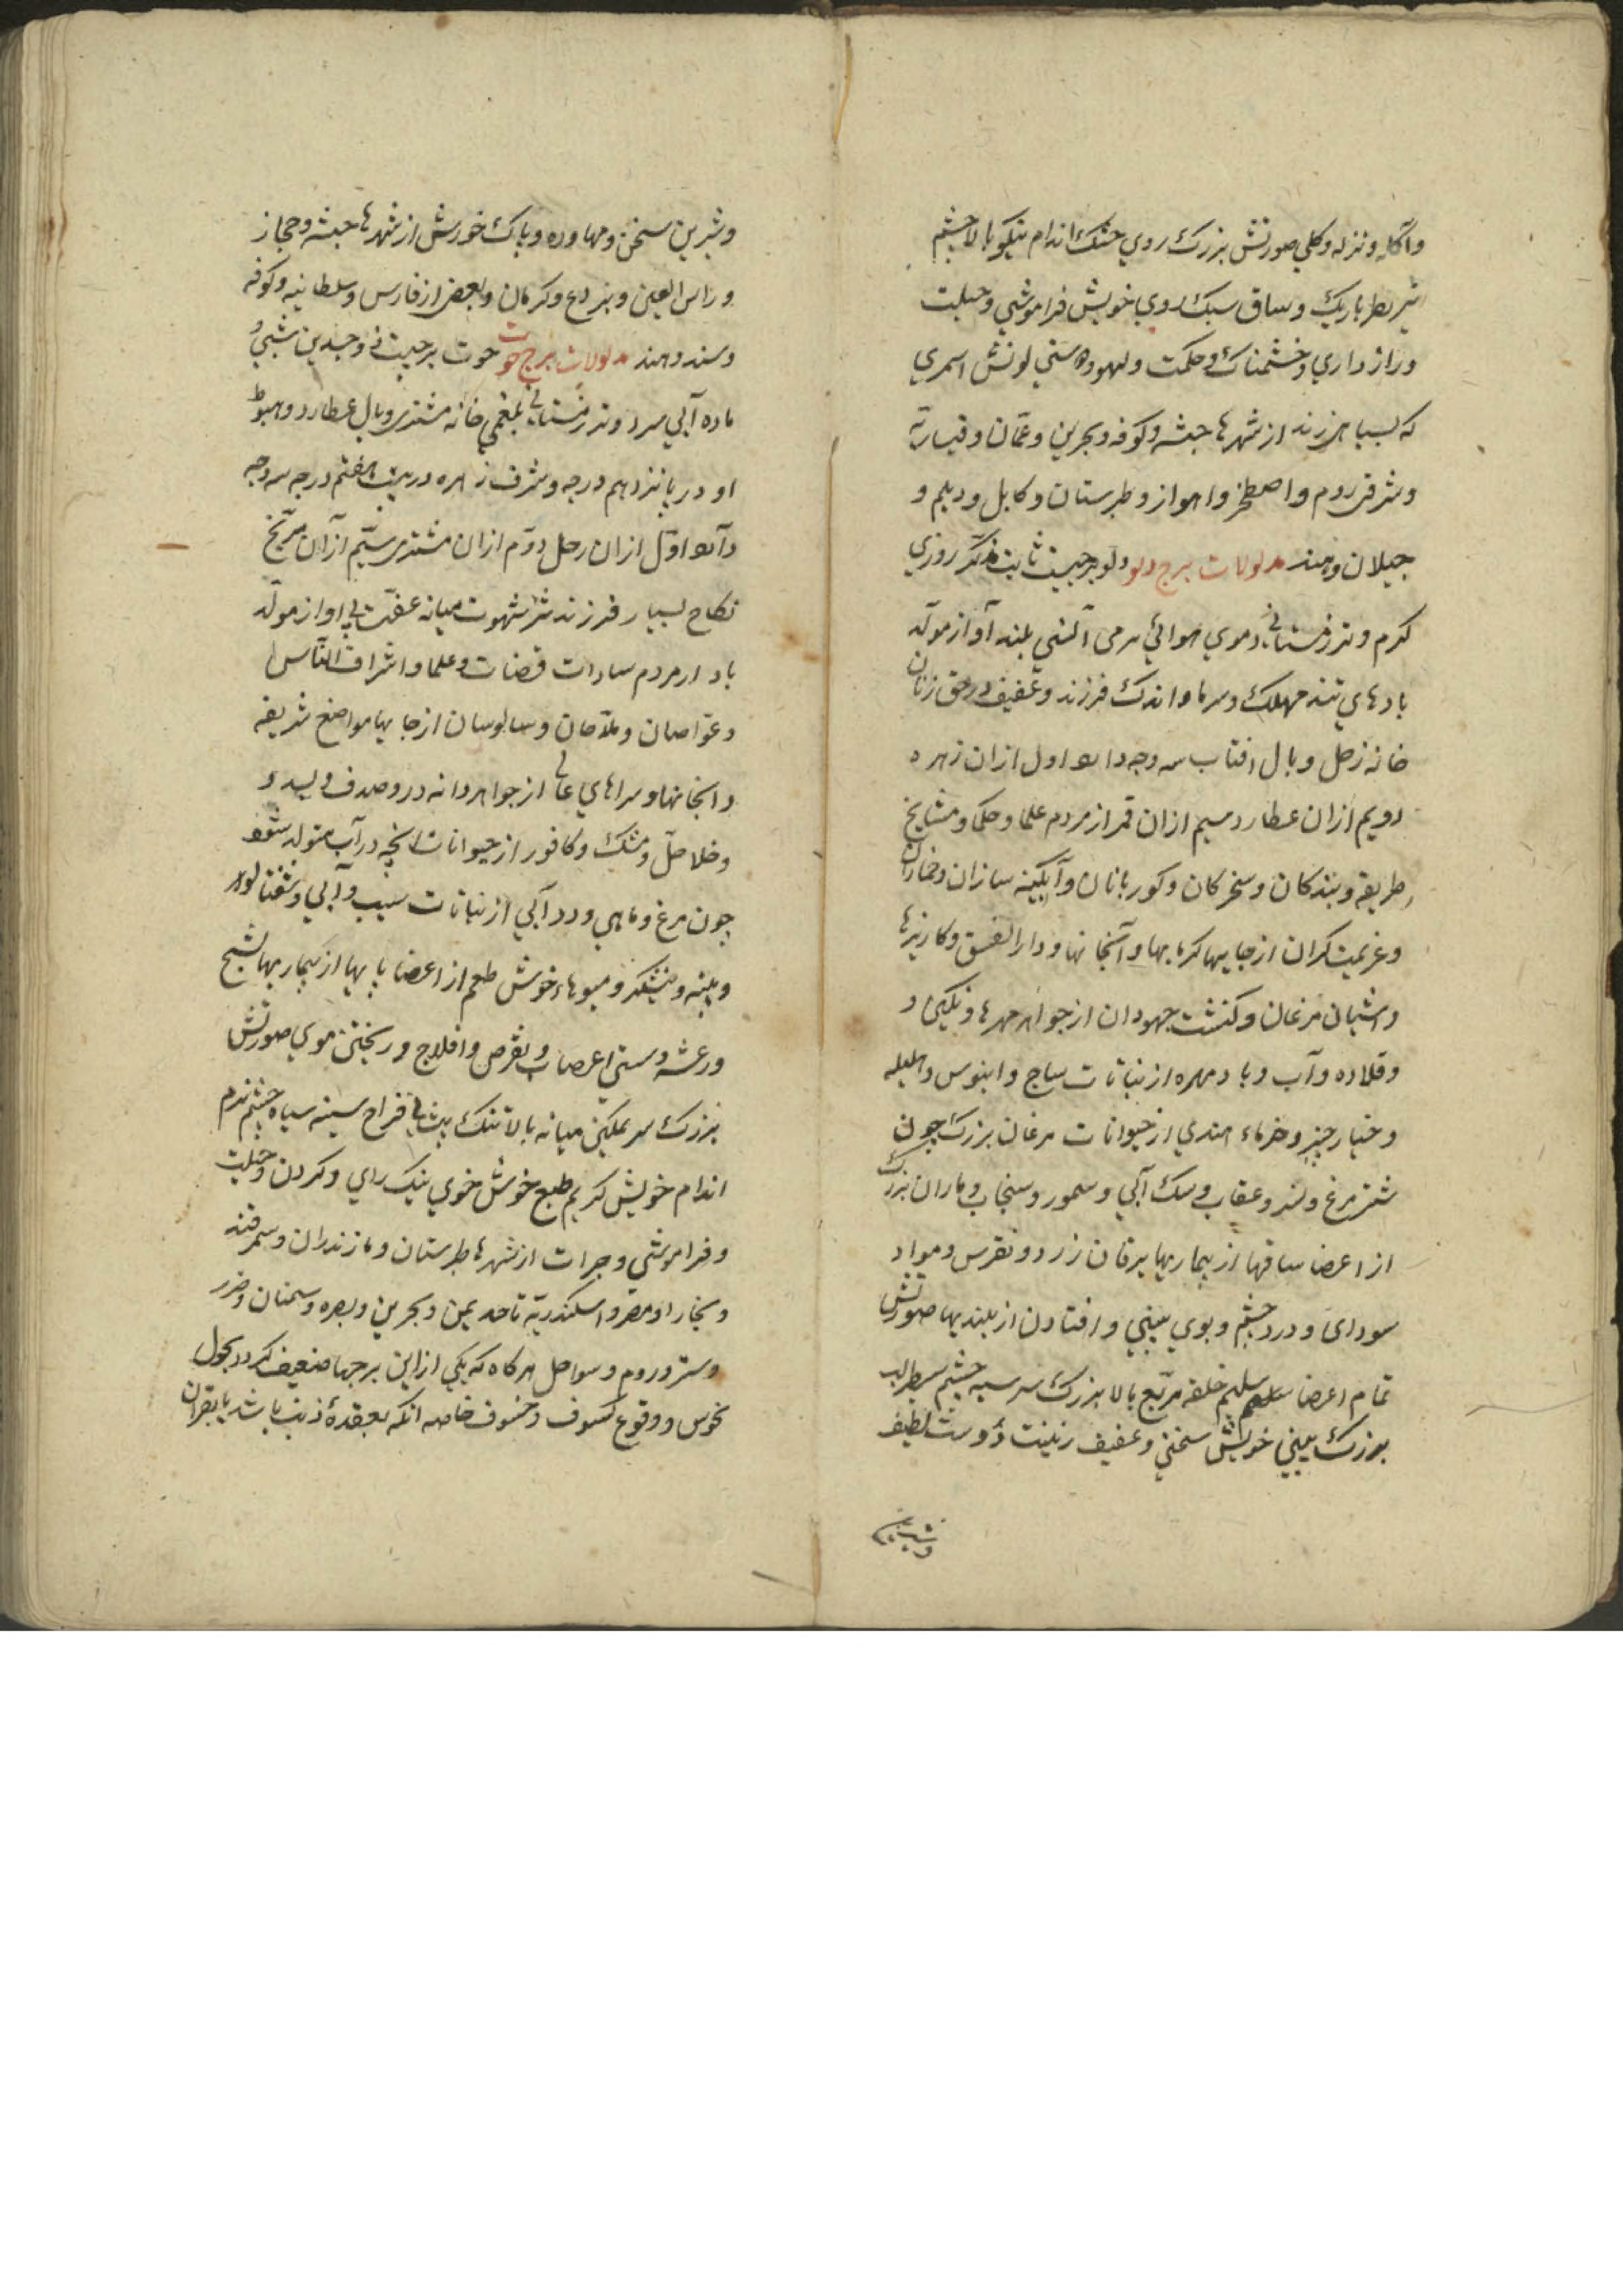 وآکله ونزله وکلي صورتش بزرك روي خشك اندام نیکو بالا چشم
بریك وساق سبك روي خویش فراموشي وحیلت
ورازداري وخشمناك وحکمت ولهو وسستي لونش اسمري
که بسیاهي زند از شهرها حبشه وکوفه وبحرین وعمّان وقیساریّه
وشرقي روم واصطخر واهواز وطبرستان وکابل ودیلم و
جیلان وهند مدلولات برج دلو دلو برجیست ثابت مذکّر روزي
کرم وتر زمستاني دموي هوائي بلند آواز مولّد
بادهاي تند مهلك وسرما واندك فرزند وعفیف در حق زنان
خانه زحل وبال افتاب سه وجه دارد اول ازان زهره
دویم ازان عطارد سیم ازان قمر از مردم علما وحکما ومشایخ
طریقه وبندکان وکوربانان وآبکینه سازان وخماران
وعزیمت کران از جایها کرمابها وآبخانها ودار الفسق وکاریزها
واشیان مرغان وکنشت جهودان از جواهر مهرها ونکین و
وقلاده وآب وباد مهره از نباتات ساج وابنوس وهلیله
وخیار چنبر وخرماء هندي از حیوانات مرغان بزرك چون
شتر مرغ وعقاب وسك آبي وسمور وسنجاب وماران بزرك
از اعضا ساقها از بیماریها یرقان زرد ونقرس ومواد
سوداي ودرد چشم وبوي بیني وافتادن از بلندیها صورتش
تمام اعضا سلیم خلقه مربّع بالا بزرك سر سیه چشم سطبر لب
بزرك بیني خویش سخي وعفیف زینت دوست لطیف
وشیرین
وشیرین سخن ومهاوره وپاك خورش از شهرها حبشه وحجاز
وراس العین وبردع وکرمان وبعض از فارس وسلطانیه وکوفه
وسند وهند مدلولات برج حوت حوت برجیست ذو جسدین شبي
ماده آبي سرد وتر زمستاني بلغمي خانه مشتري وبال عطارد وهبوط
او در پانزدهم درجه وشرف زهره در بیست هفتم درجه سه وجه
دارد اوّل ازان زحل دوّم ازان مشتري سیّم ازان مرّیخ
نکاح بسیار فرزند شهوت میانه عفّت بي اواز مولّد
باد از مردم سادات قضات وعلما واشراف النّاس
وغوّاصان وملّاحان وسالوسان از جایها مواضع شریفه
وابخانها وسراهاي عالي از جواهر دانه در وصدف وبسد و
ومشك وکافور از حیوانات انچه در آب متولد شود
چون مرغ وماهي ودد آبي از نباتات سیب وآبي وشفتالود
وپنبه ونیشکر ومیوهاء خوش طعم از اعضا پایها از بیماریها تشنج
ورعشه وسستي اعصاب ونقرس وافلاج وریختن موي صورتش
بزرك سر نمکین میانه بالا تنك پیشاني فراخ سینه سیاه چشم نرم
اندام خویش کریم طبع خوش خوي نیك راي وکردن وحیلت
وفراموشي وجرات از شهرها طبرستان ومازندران وسمرقند
وبخارا ومصر واسکندریّه تا حد یمن وبحرین وبصره وسمنان وخزر
وروم وسواحل هرکاه که یکي ازاین برجها ضعیف کردد بحلول
نحوس ووقوع کسوف وخسوف خاصه انکه بعقدهٔ ذنب باشد یا بقران